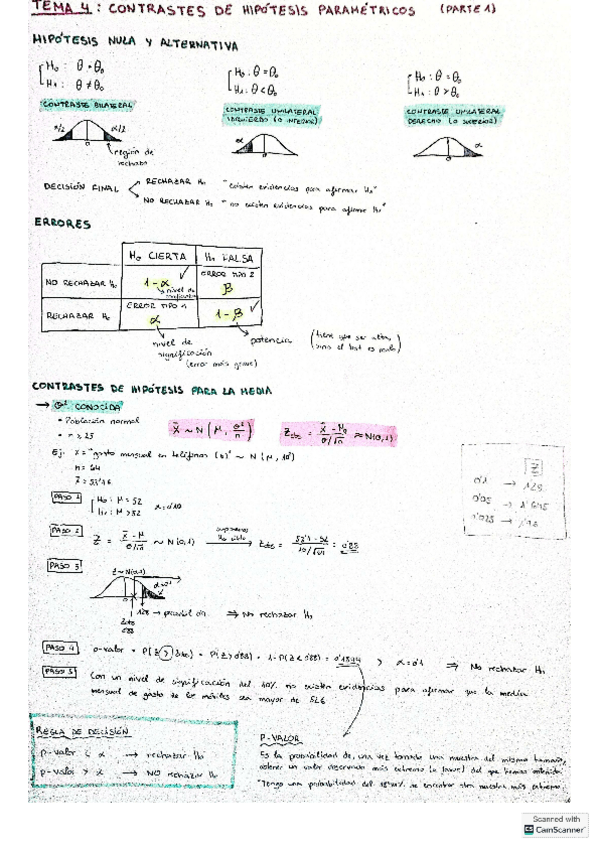 TEMA 4: CONTRASTES DE HIPÓTESIS PARAMÉTRICOS (PARTE 1)
HIPÓTESIS NULA Y ALTERNATIVA
H₀ : θ = θ₀
H₁ : θ ≠ θ₀
CONTRASTE BILATERAL
α/2 α/2
0
región de rechazo
H₀ : θ = θ₀
H₁ : θ < θ₀
CONTRASTE UNILATERAL
IZQUIERDO (O INFERIOR)
α
0
H₀ : θ = θ₀
H₁ : θ > θ₀
CONTRASTE UNILATERAL
DERECHO (O SUPERIOR)
α
0
DECISIÓN FINAL
RECHAZAR H₀ "existen evidencias para afirmar H₁"
NO RECHAZAR H₀ "no existen evidencias para afirmar H₁"
ERRORES
H₀ CIERTA H₀ FALSA
NO RECHAZAR H₀ 1-α ✓ nivel de confianza ERROR TIPO 2 β
RECHAZAR H₀ ERROR TIPO 1 α 1-β ✓
nivel de
significación
(error más grave)
potencia (tiene que ser alta, sino el test es malo)
CONTRASTES DE HIPÓTESIS PARA LA MEDIA
→ σ² CONOCIDA
• Población normal
• n ≥ 25
X̄ ~ N(μ, σ²/n)
Z_obs = (x̄ - μ₀)/(σ/√n) ≈ N(0,1)
Ej: x = "gasto mensual en teléfonos (€)" ~ N(μ, 10²)
n = 64
Z
0'1 → 1'28
0'05 → 1'645
0'025 → 1'96
PASO 1
H₀ : μ = 52
H₁ : μ > 52
α = 0'10
PASO 2
Z = (x̄ - μ)/(σ/√n) ~ N(0,1) → suponemos H₀ cierta Z_obs = = 0'88
PASO 3
Z ~ N(0,1)
α = 0'1
0
1'28
Z_obs
0'88
⇒ No rechazar H₀
PASO 4 p-valor = P(Z > Z_obs) = P(Z > 0'88) = 1 - P(Z < 0'88) = 0'1894 > α = 0'1 ⇒ No rechazar H₀
PASO 5 Con un nivel de significación del 10% no existen evidencias para afirmar que la media
mensual de gasto de los móviles sea mayor de 52€
REGLA DE DECISIÓN
p-valor < α → rechazar H₀
p-valor > α → NO rechazar H₀
P-VALOR
Es la probabilidad de, una vez tomada una muestra del mismo tamaño,
obtener un valor observado más extremo (a favor) del que hemos obtenido
"Tengo una probabilidad del de encontrar otra muestra más extrema
Scanned with
CS CamScanner